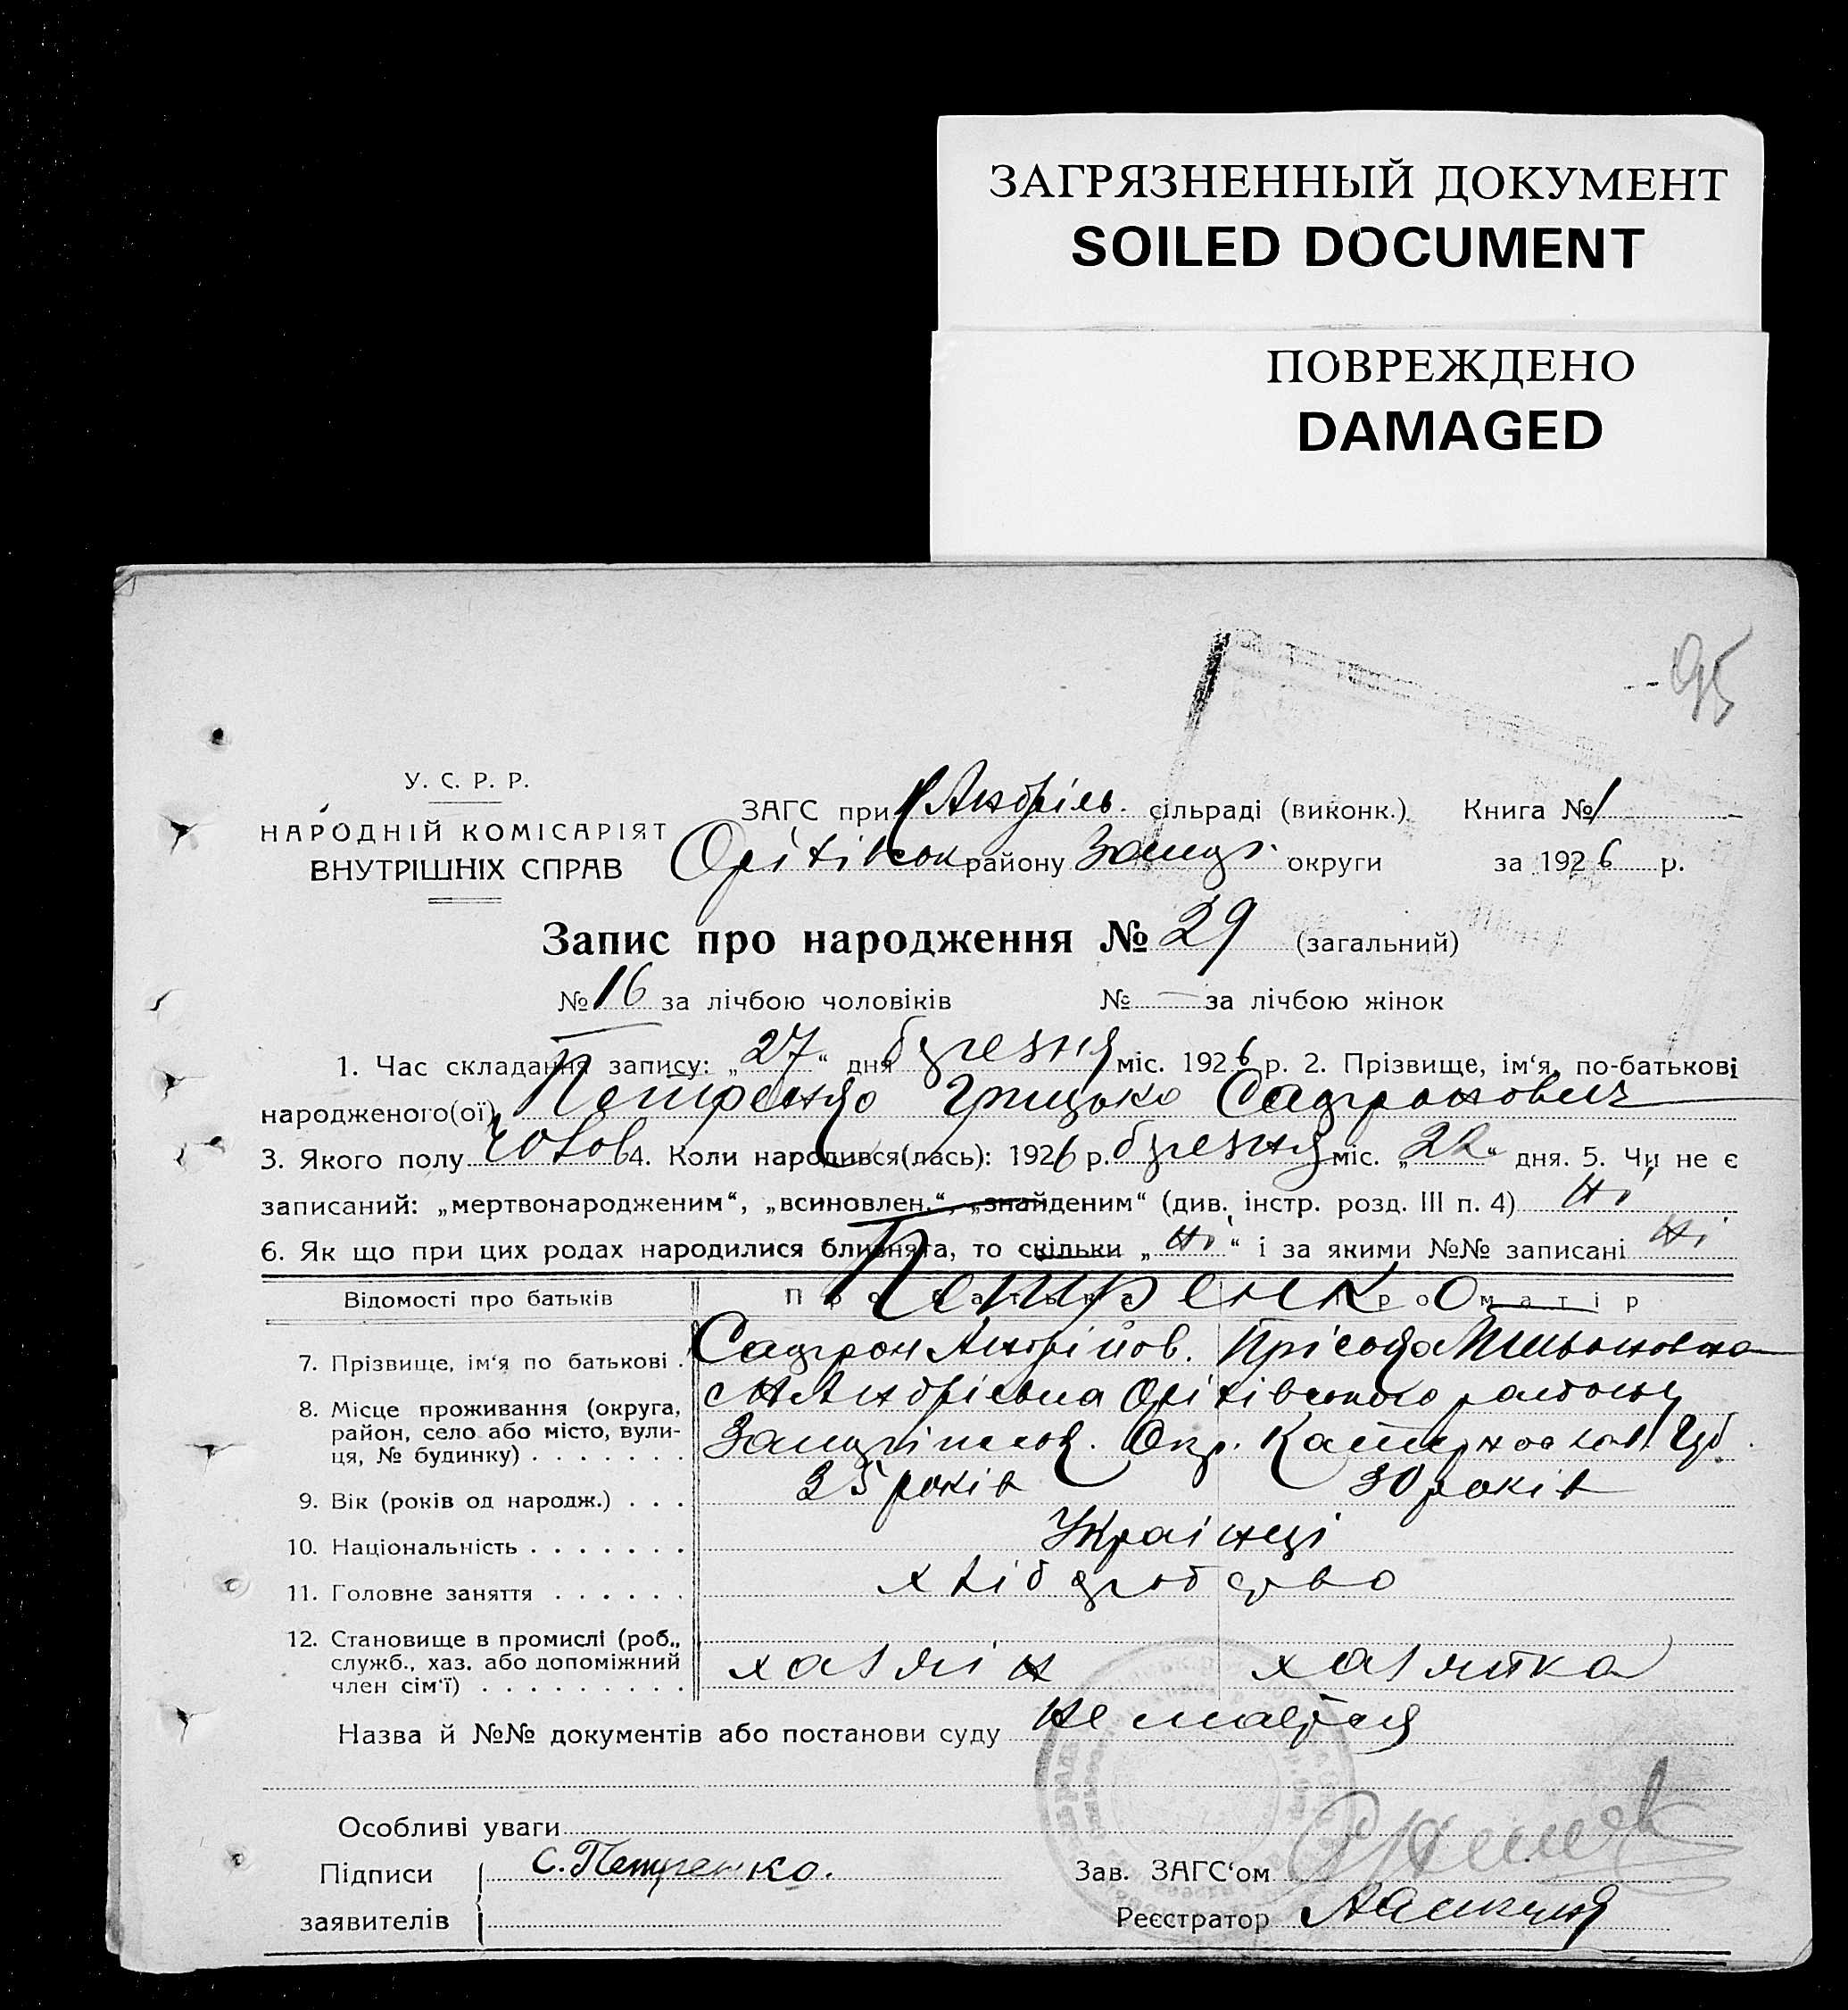 ЗАГРЯЗНЕННЫЙ ДОКУМЕНТ
SOILED DOCUMENT
ПОВРЕЖДЕНО
DAMAGED
95
У. С. Р. Р.
НАРОДНІЙ КОМІСАРІЯТ
ВНУТРІШНІХ СПРАВ
ЗАГС при Андріїв. сільраді (виконк.) Книга № 1
Оріхівськ району Запор. округи за 1926 р.
Запис про народження № 29 (загальний)
№ 16 за лічбою чоловіків № — за лічбою жінок
1. Час складання запису: „27“ дня березня міс. 1926 р. 2. Прізвище, ім‘я, по-батькові
народженого(ої) Петренко Грицько Сафронович
3. Якого полу чолов 4. Коли народився(лась): 1926 р. березня міс. „22“ дня. 5. Чи не є
записаний: „мертвонародженим“, „всиновлен.“, „знайденим“ (див. інстр. розд. III п. 4) Ні
6. Як що при цих родах народилися близнята, то скільки „Ні“ і за якими №№ записані Ні
Відомості про батьків Про батька Про матір
Петренко
7. Прізвище, ім‘я по батькові . Сафрон Андрійов. Прісья
8. Місце проживання (округа, район, село або місто, вулиця, № будинку) . . . . . . . Оріхівського району
Окр. Катеринослав. Губ.
9. Вік (років од народж.) . . . 35 років 30 років
10. Національність . . . . . . . Украінці
11. Головне заняття . . . . . . хліборобство
12. Становище в промислі (роб.,
служб., хаз. або допоміжний
член сім‘ї) . . . . . . . . . хазяін хазяйка
Назва й №№ документів або постанови суду не мається
Особливі уваги
Підписи С. Петренко. Зав. ЗАГС‘ом
заявителів Реєстратор